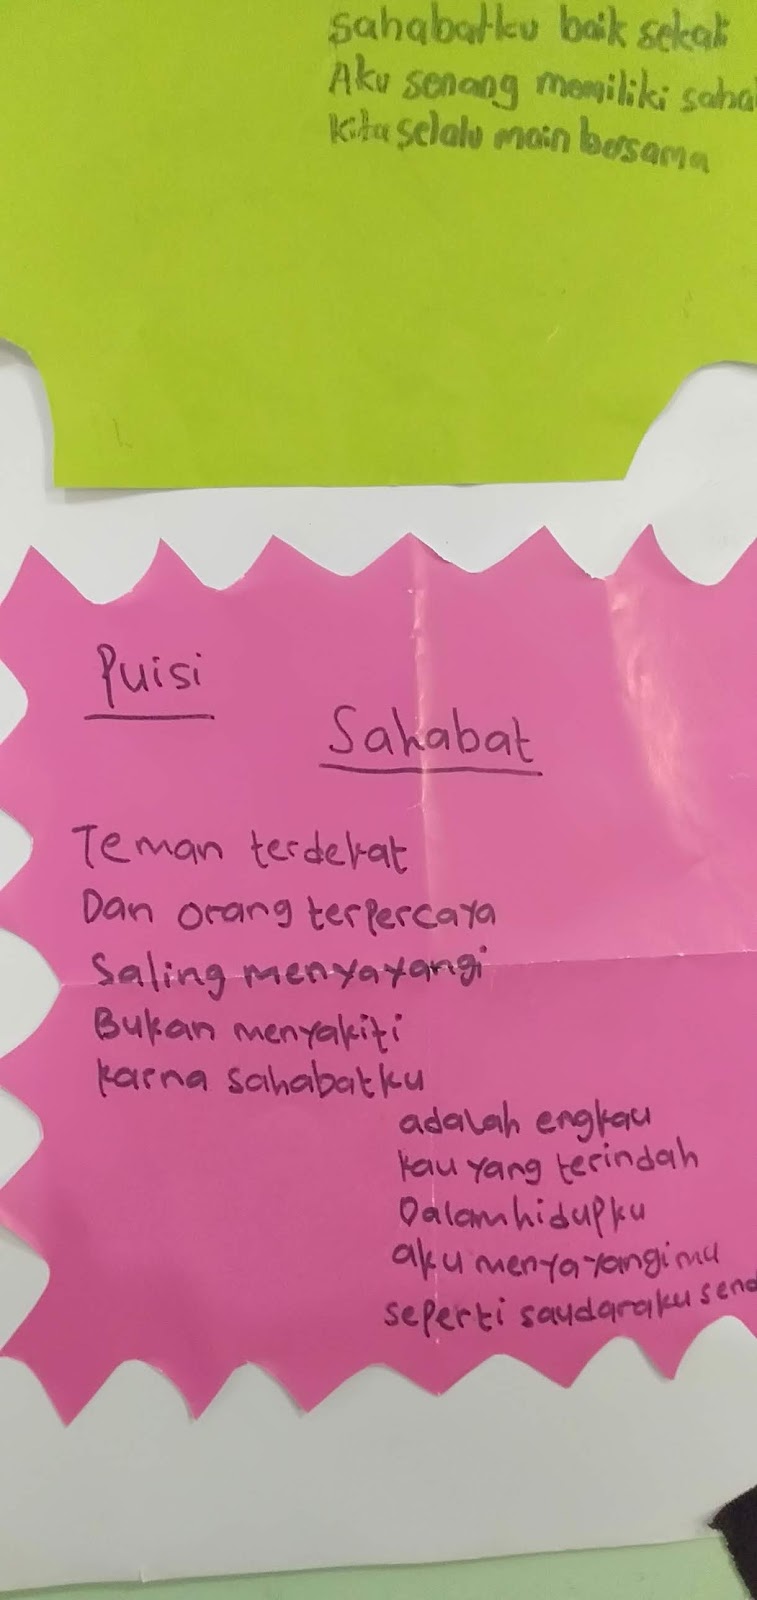 sahabatku baik sekali
Aku senang memiliki
kita selalu main bersama
Puisi
Sahabat
Teman terdekat
Dan orang terpercaya
Saling menyayangi
Bukan menyakiti
karna sahabatku
adalah engkau
kau yang terindah
Dalam hidupku
aku menyayangimu
seperti saudaraku